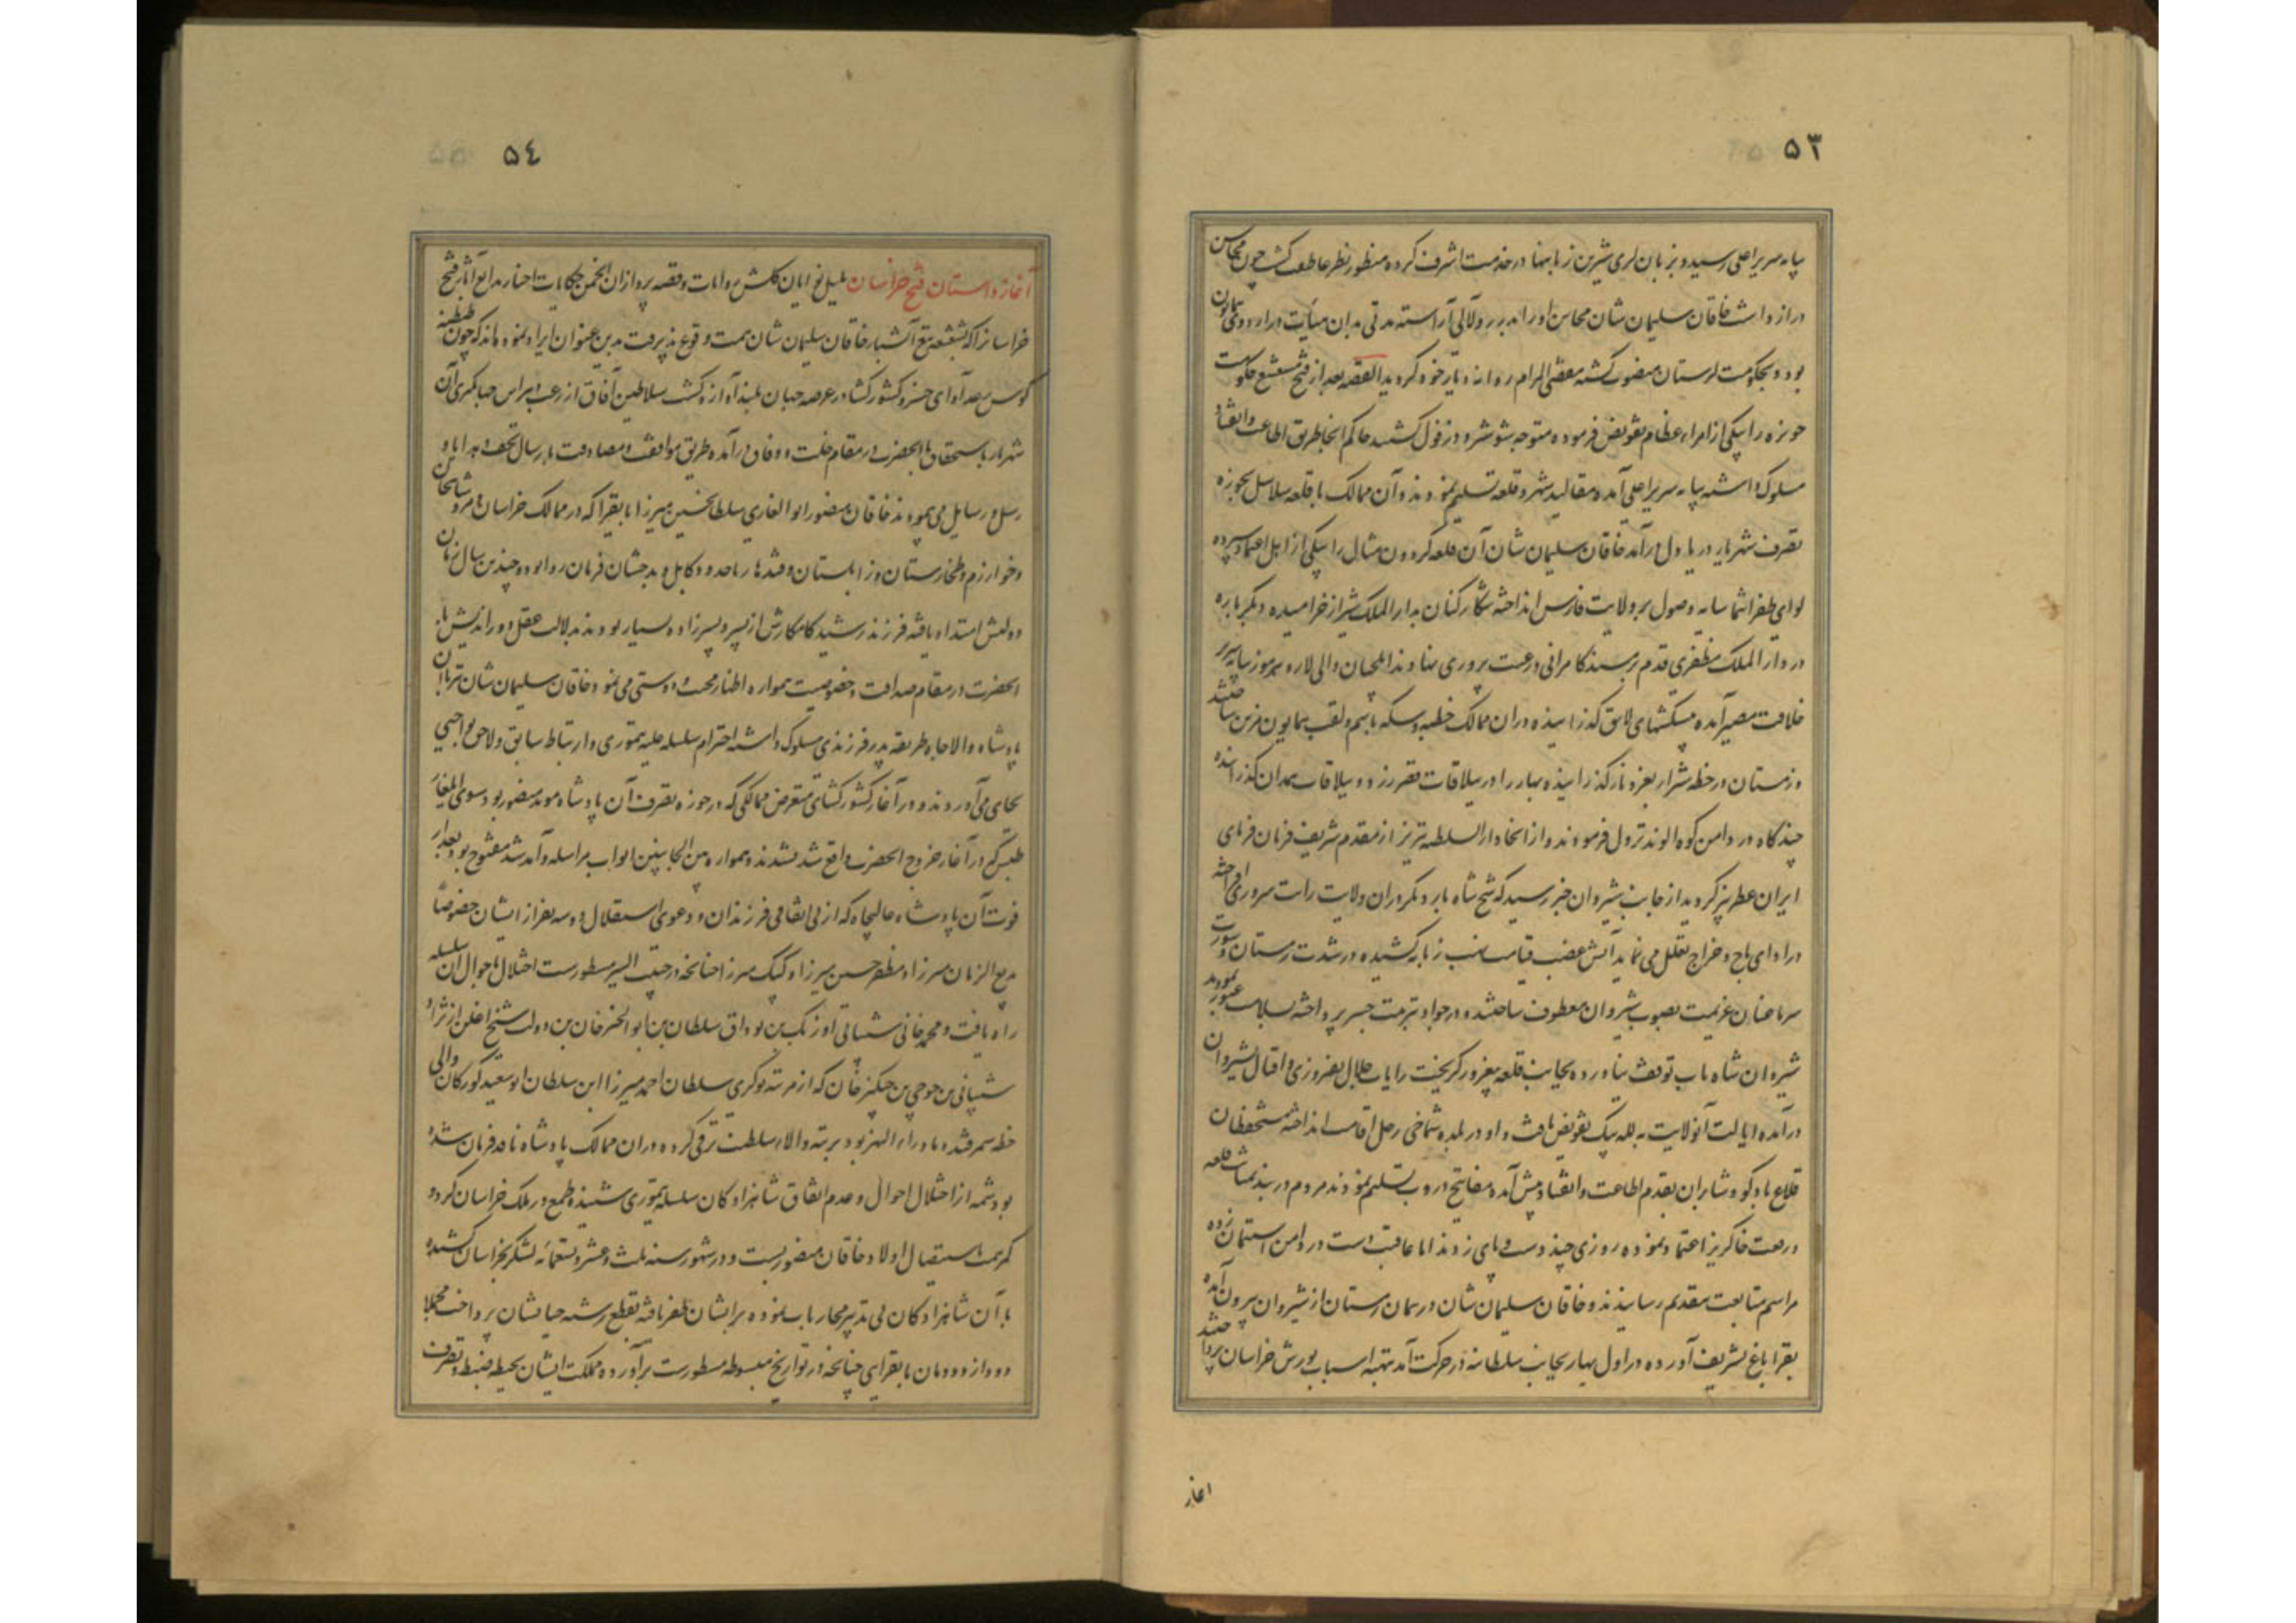 ۵۳
پایه سریر اعلی رسید و بزبان لری شیرین زبانیها در خدمت اشرف کرده منظور نظر عاطفت گشت چون محاسن
دراز داشت خاقان سلیمان شان محاسن او را بدر و لآلی آراسته مدتی بدان هیأت در اردوی همایون
بود و بحکومت لرستان منصوب گشته مقضی المرام روانه دیار خود گردید القصه بعد از فتح مشعشع حکومت
حویزه را بیکی از امراء عظام تفویض فرموده متوجه شوشتر و دزفول گشتند حاکم آنجا طریق اطاعت و انقیاد
مسلوک داشته بپایه سریر اعلی آمده مقالید شهر و قلعه تسلیم نمودند و آن ممالک با قلعه سلاسل بحوزه
تصرف شهریار دریا دل درآمد خاقان سلیمان شان آن قلعه گردون مثال را بیکی از اهل اعتماد سپرده
لوای ظفر انتما سایه وصول بر ولایت فارس انداخته شکار کنان بدار الملک شیراز خرامیده دیگر باره
در دار الملک مظفری قدم بر مسند کامرانی و رعیت پروری نهادند ایلچیان والی لار و هرموز بپایه سریر
خلافت مصیر آمده پیشکشهای لایق گذرانیده در آن ممالک خطبه و سکه باسم و لقب همایون مزین ساختند
و زمستان در خطه شیراز بعز و ناز گذرانیده بهار را در ییلاقات قصر زرد و ییلاقات همدان گذرانیده
چند گاه در دامن کوه الوند نزول فرمودند و از آنجا دار السلطنه تبریز از مقدم شریف فرمان فرمای
ایران عطر بیز گردید از جانب شیروان خبر رسید که شیخ شاه بار دیگر در آن ولایت رایت سروری افراخته
در ادای باج و خراج تعلل می نماید آتش غضب قیامت لهب زبانه کشیده در شدت زمستان و سورت
سرما عنان عزیمت بصوب شیروان معطوف ساختند و در جواد بترتیب جسر پرداخته بسلامت عبور نمودند
شیروان شاه تاب توقف نیاورده بجانب قلعه بیغرد گریخت رایات جلال بفیروزی و اقبال بشیروان
درآمده ایالت آنولایت به لله بیک تفویض یافت و او در بلده شماخی رحل اقامت انداخته مستحفظان
قلاع بادکو و شابران بقدم اطاعت و انقیاد پیش آمده مفاتیح دروب تسلیم نمودند مردم دربند بمتانت قلعه
و رفعت خاکریز اعتماد نموده روزی چند دست و پای زدند اما عاقبت دست در دامن استیمان زده
مراسم متابعت بتقدیم رسانیدند و خاقان سلیمان شان در همان زمستان از شیروان بیرون آمده
بقراباغ تشریف آورده در اول بهار بجانب سلطانیه در حرکت آمد بتهیه اسباب یورش خراسان پرداختند
آغاز
۵٤
آغاز داستان فتح خراسان بلبل نوایان گلشن روایات و قصه پردازان انجمن حکایات اخبار بدایع آثار فتح
خراسانرا که بشعشعه تیغ آتشبار خاقان سلیمان شان سمت وقوع پذیرفت بدین عنوان ایراد نموده اند که چون طنطنه
کوس رعد آوای خسرو کشور گشا در عرصه جهان بلند آوازه گشت سلاطین آفاق از رعب و هراس جهانگیری آن
شهریار باستحقاق با آنحضرت در مقام خلت و وفاق درآمده طریق موافقت و مصادقت بارسال تحف و هدایا و
رسل و رسایل می پیمودند خاقان منصور ابو الغازی سلطانحسین میرزا بایقرا که در ممالک خراسان و مرو شاهیجان
و خوارزم و طخارستان و زابلستان و قندهار تا حدود کابل و بدخشان فرمان روا بوده چندین سال زمان
دولتش امتداد یافته فرزند رشید کامکارش از پسر و پسرزاده بسیار بودند بدلالت عقل دور اندیش با
آنحضرت در مقام صداقت و خصوصیت همواره اظهار محبت و دوستی می نمود خاقان سلیمان شان نیز با آن
پادشاه والا جاه طریقه پدر فرزندی مسلوک داشته احترام سلسله علیه تیموری و ارتباط سابق و لاحق بواجبی
بجای می آوردند و در آغاز کشور گشای متعرض ممالکی که در حوزه تصرف آن پادشاه مؤید منصور بود سوی ایلغار
طبس که در آغاز خروج آنحضرت واقع شد نشدند و همواره بین الجانبین ابواب مراسله و آمد شد مفتوح بود بعد از
فوت آن پادشاه عالیجاه که از بی اتفاقی فرزندان و دعوی استقلال دو سه نفر از ایشان خصوصاً
بدیع الزمان میرزا و مظفر حسین میرزا و کپک میرزا چنانچه در حبیب السیر مسطورست اختلال باحوال آن سلسله
راه یافت و محمد خانی شیبانی اوزبک بن بوداق سلطان بن ابو الخیر خان بن دولت شیخ اغلن از نژاد
شیبانی بن جوجی بن چنگیز خان که از مرتبه نوکری سلطان احمد میرزا ابن سلطان ابو سعید کورکان والی
خطه سمرقند و ماوراء النهر بود بمرتبه والاء سلطنت ترقی کرده در آن ممالک پادشاه نافذ فرمان شده
بود شمه از اختلال احوال و عدم اتفاق شاهزادگان سلسله تیموری شنیده طمع در ملک خراسان کرد و
کمر همت باستیصال اولاد خاقان منصور بست و در شهور سنه ثلث و عشر و تسعمائه لشکر بخراسان کشیده
با آن شاهزادگان بی تدبیر محاربات نموده بر ایشان ظفر یافته بقطع رشته حیاتشان پرداخت مجملا
دود از دودمان بایقرایی چنانچه در تواریخ مبسوطه مسطورست برآورده مملکت ایشان بحیطه ضبط و تصرف